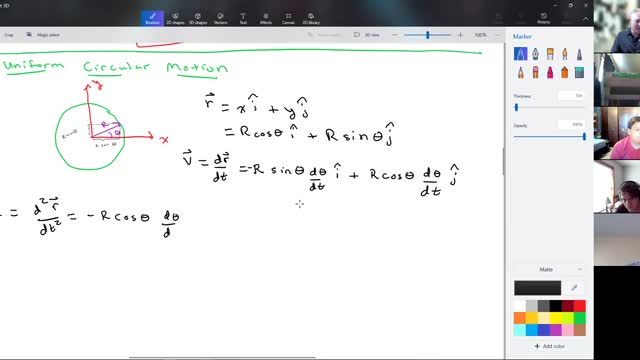 Brushes
2D shapes
3D shapes
Stickers
Text
Effects
Canvas
3D library
Paste
Undo
History
Redo
Crop
Magic select
3D view
100%
Marker
Thickness:
Opacity:
100%
Matte
Add color
Uniform Circular Motion
y
x
R
θ
R sinθ
R cosθ
r⃗ = x î + y ĵ
= R cosθ î + R sinθ ĵ
V⃗ = dr⃗/dt = -R sinθ dθ/dt î + R cosθ dθ/dt ĵ
= d²r⃗/dt² = -R cosθ dθ/d